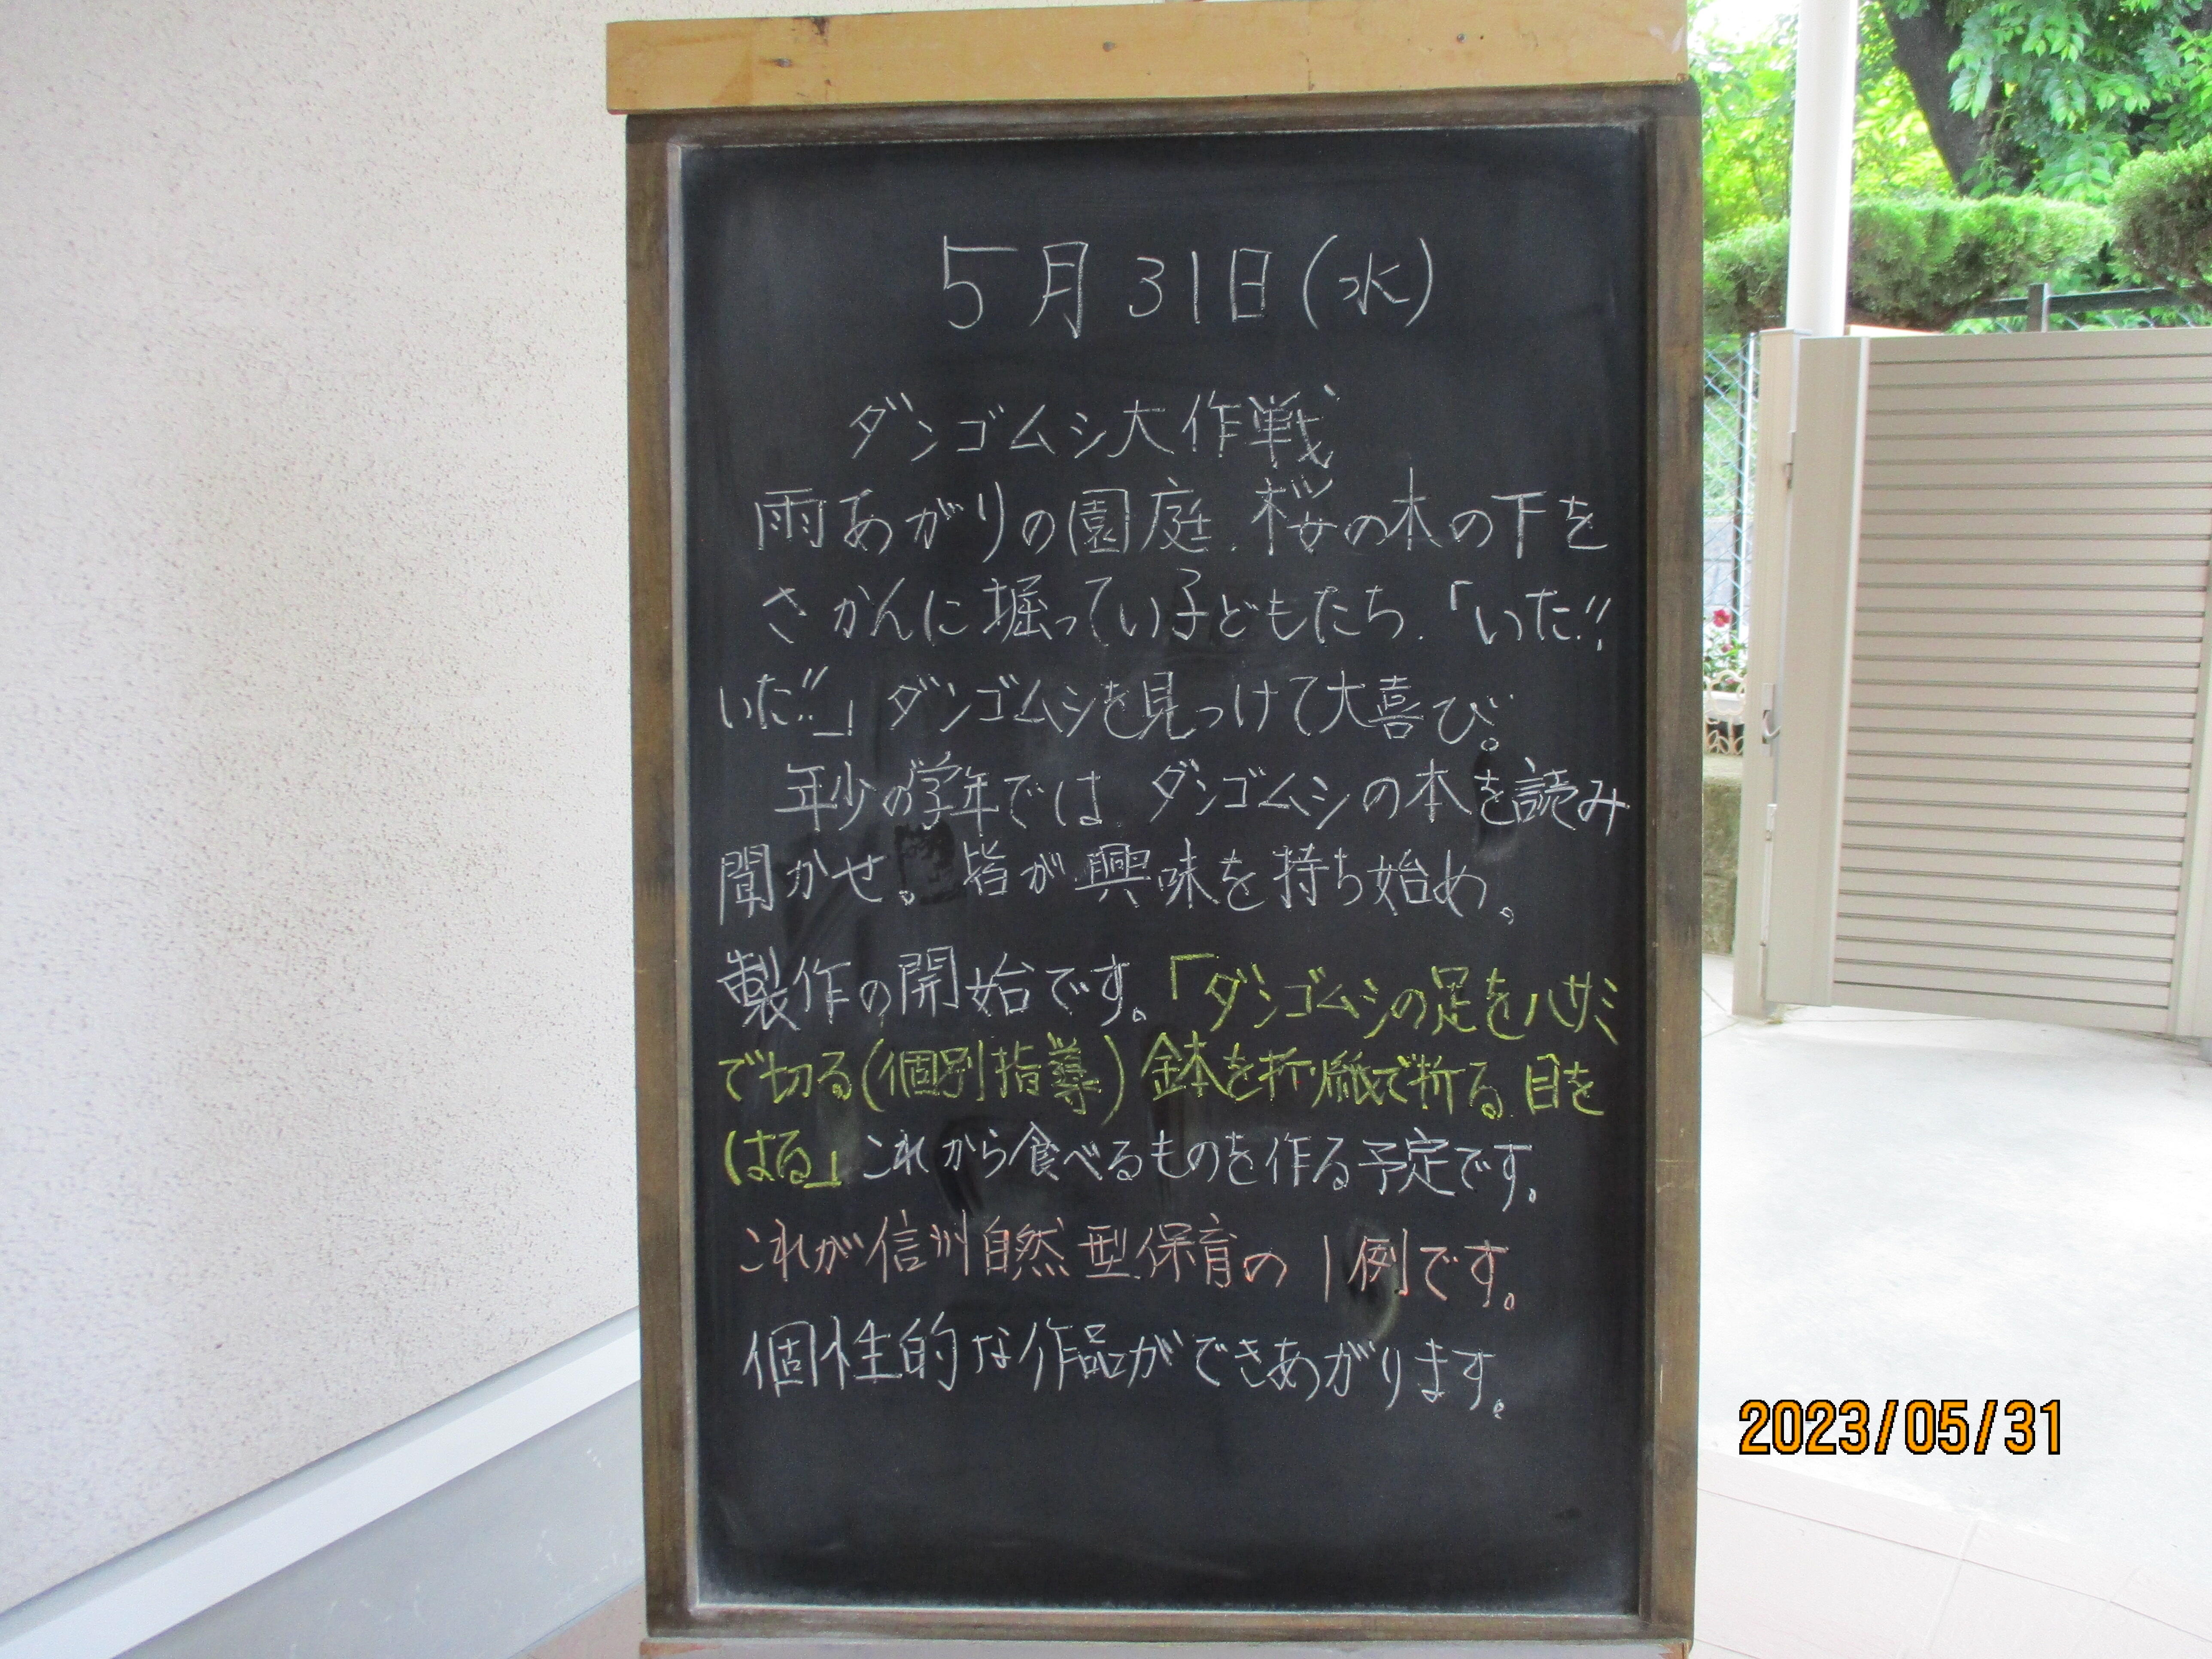 5月31日(水)
ダンゴムシ大作戦
雨あがりの園庭、桜の木の下を
さかんに堀ってい子どもたち、「いた!!
いた!!」ダンゴムシを見つけて大喜び。
年少の学年では ダンゴムシの本を読み
聞かせ。皆が興味を持ち始め。
製作の開始です。「ダンゴムシの足をハサミ
で切る(個別指導) 体を折り紙で折る、目を
はる」これから食べるものを作る予定です。
これが信州自然型保育の1例です。
個性的な作品ができあがります。
2023/05/31